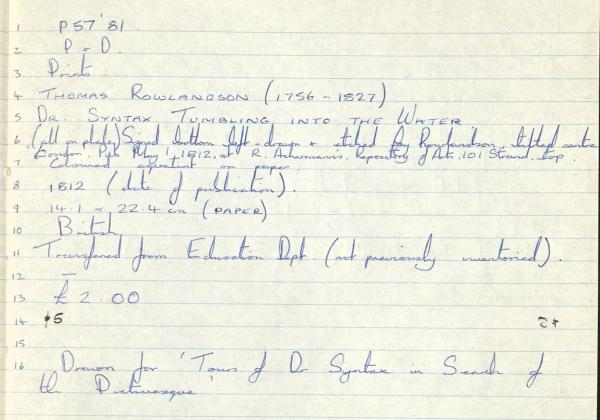 1 P57'81
2 P + D.
3 Prints.
4 THOMAS ROWLANDSON (1756 - 1827)
5 DR. SYNTAX TUMBLING INTO THE WATER
6 (all on plate) Signed bottom left - drawn + etched by Rowlandson, titled centre
London. Pub May 1, 1812, at R. Ackermann's, Repository of Arts, 101 Strand, top
7 Coloured aquatint on paper
8 1812 (date of publication).
9 14.1 x 22.4 cm (PAPER)
10 British
11 Transferred from Education Dept. (not previously inventoried).
12 —
13 £2.00
14
15
16 Drawn for 'Tours of Dr Syntax in Search of
the Picturesque'